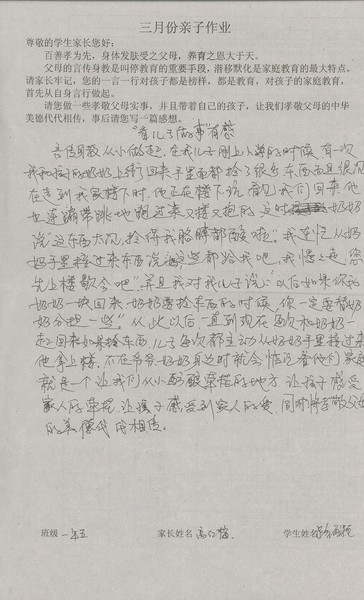 三月份亲子作业
尊敬的学生家长您好：
百善孝为先，身体发肤受之父母，养育之恩大于天。
父母的言传身教是叫停教育的重要手段，潜移默化是家庭教育的最大特点。
请家长牢记，您的一言一行对孩子都是榜样，都是教育，对孩子的家庭教育，
首先从自身言行做起。
请您做一些孝敬父母实事，并且带着自己的孩子，让我们孝敬父母的中华
美德代代相传，事后请您写一篇感想。
"看儿子做事"有感
言传身教从小做起，在我儿子刚上小学的时候，有一次
我和我的奶奶上街回来手里面都拎了很多东西而且很沉
在走到我家楼下时，他正在楼下玩，看见我们回来他
也连蹦带跳地跑过来又搂又抱的，这时奶奶
说"这东西太沉，拎得我胳膊都酸啦"。我连忙从奶
奶手里接过来东西说这些都给我吧，我慢上走，您
先上楼歇会吧"并且我对我儿子说："以后如果你和
奶奶一块回来，奶奶要拎东西的时候，你一定要帮奶
奶分担一些"。从此以后，一直到现在每次和奶奶一
起回来如果拎东西，儿子每次都主动从奶奶手里接过来
他拿上楼，不在爷爷奶奶身边时就会惦记着他们。家庭
就是一个让我们从小的地方，让孩子感受
家人的，让孩子感受到家人的爱，同时将孝敬父母
的美德代代相传。
班级 一年五 家长姓名 学生姓名